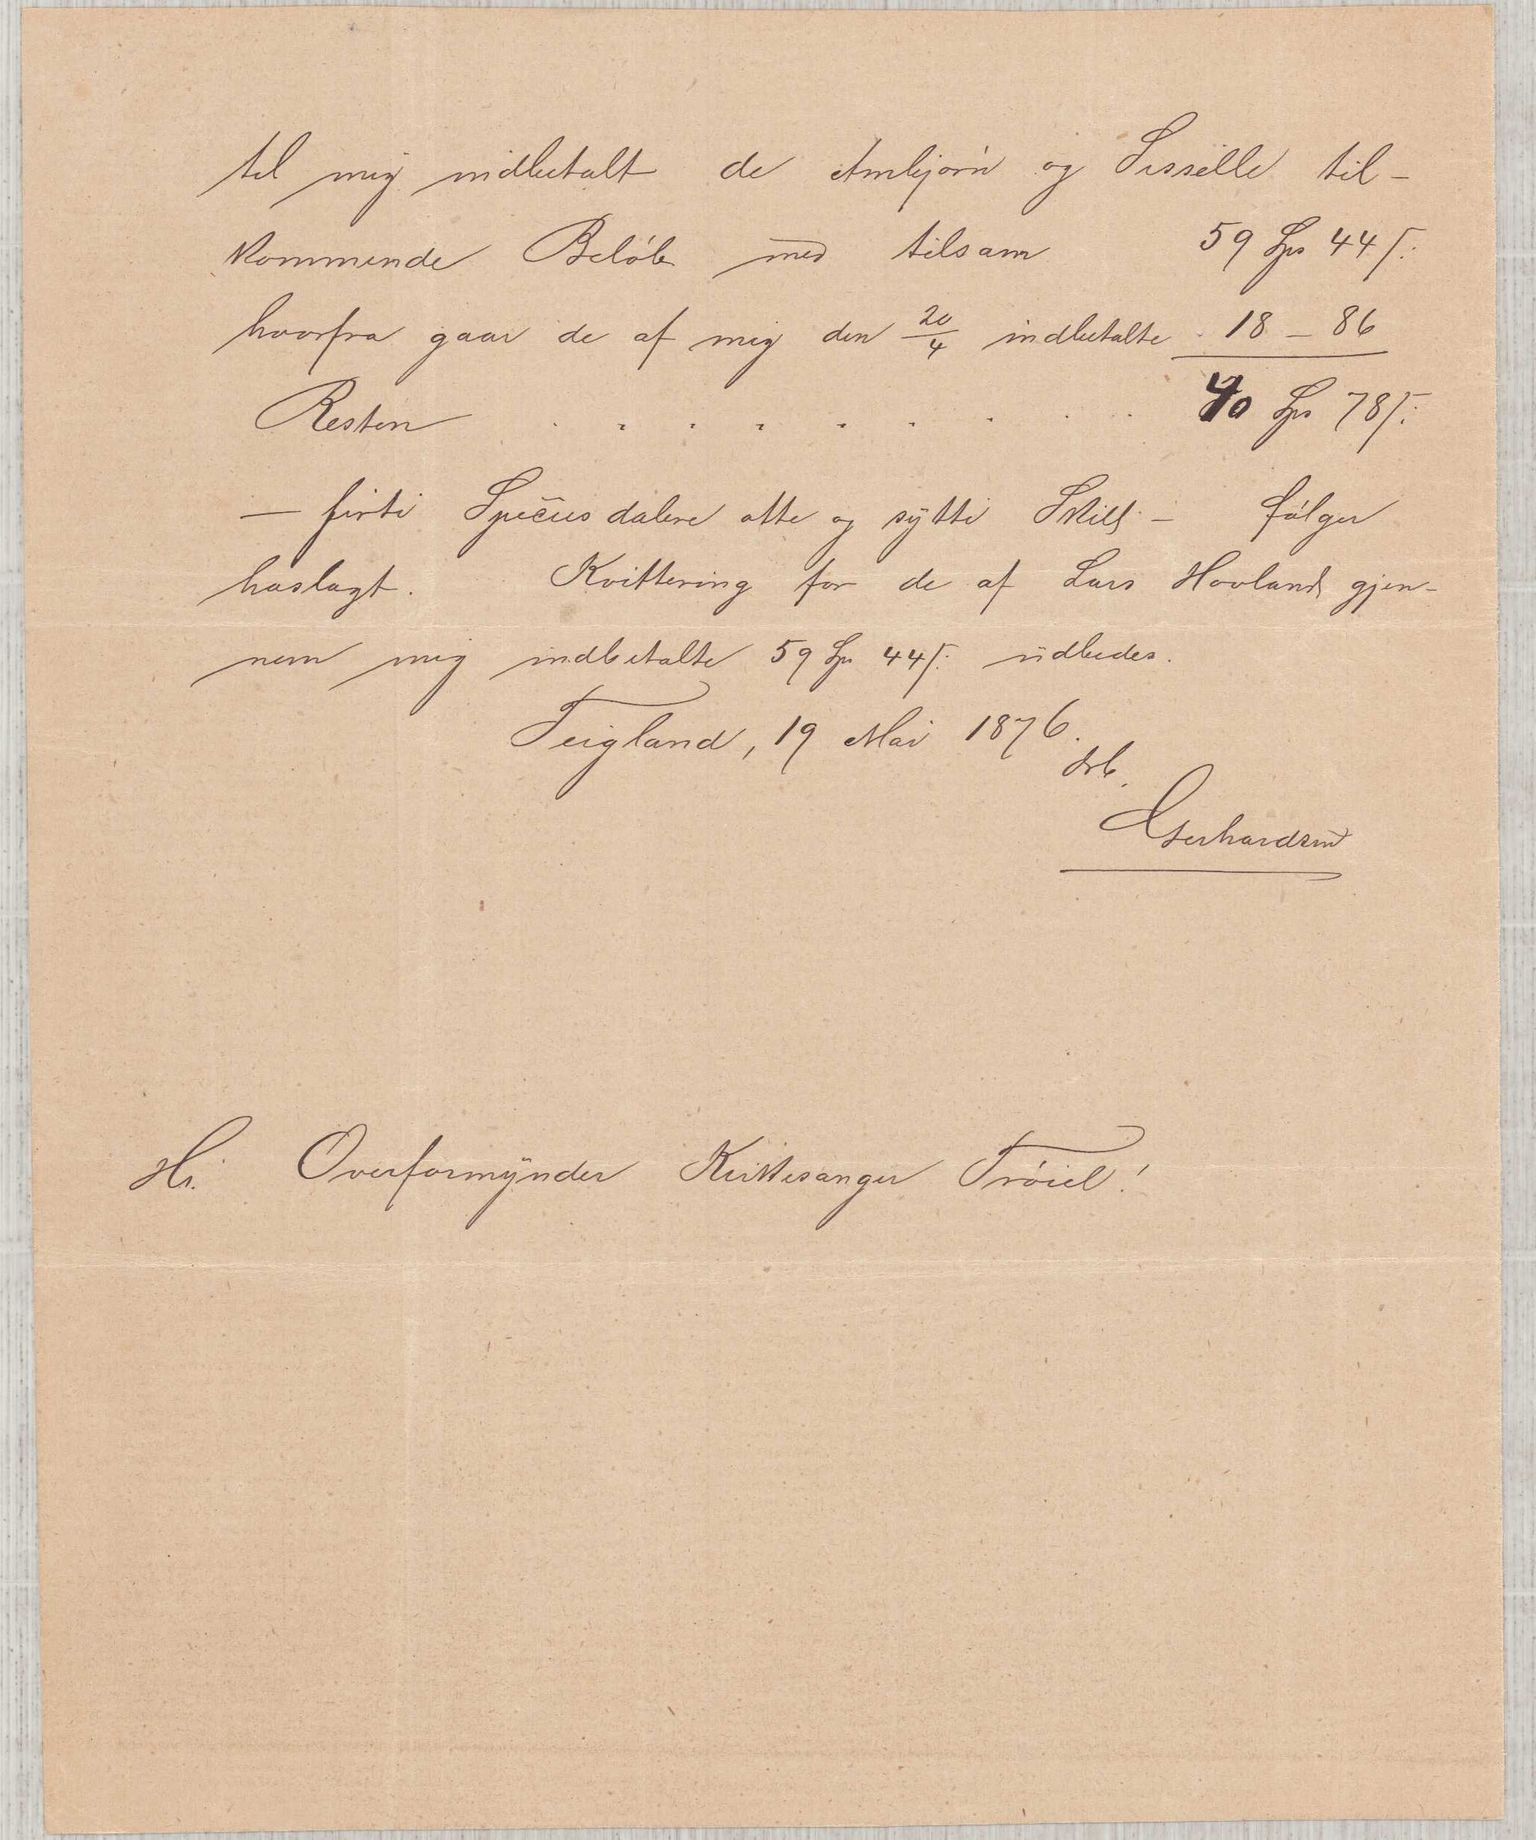 til mig indbetalt de Arnbjørn og Sisselle til-
kommende Beløb med tilsam 59 Sp 44 ſ:
hvorfra gaar de af mig den 20/4 indbetalte 18 – 86
Resten . . . . . . . . . 40 Sp 78 ſ:
– firti Speciesdalere otte og sytti Skill – følger
hoslagt. Kvittering for de af Lars Hovland gjen-
nem mig indbetalte 59 Sp 44 ſ: udbedes.
Teigland, 19 Mai 1876.
Ærb.
Gerhardsen
Hr. Overformynder Kirkesanger Trøiel!